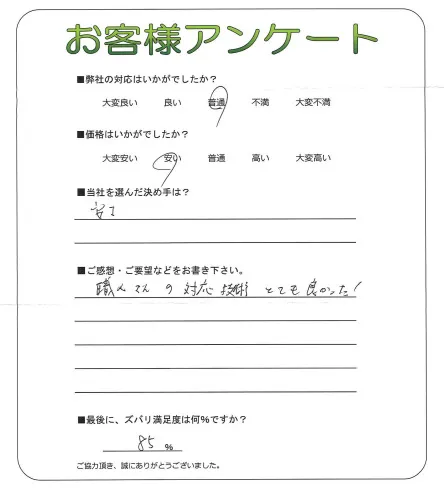 お客様アンケート
■弊社の対応はいかがでしたか?
大変良い 良い 普通 不満 大変不満
■価格はいかがでしたか?
大変安い 安い 普通 高い 大変高い
■当社を選んだ決め手は?
■ご感想・ご要望などをお書き下さい。
職人さんの対応技術とても良かった!
■最後に、ズバリ満足度は何%ですか?
85 %
ご協力頂き、誠にありがとうございました。